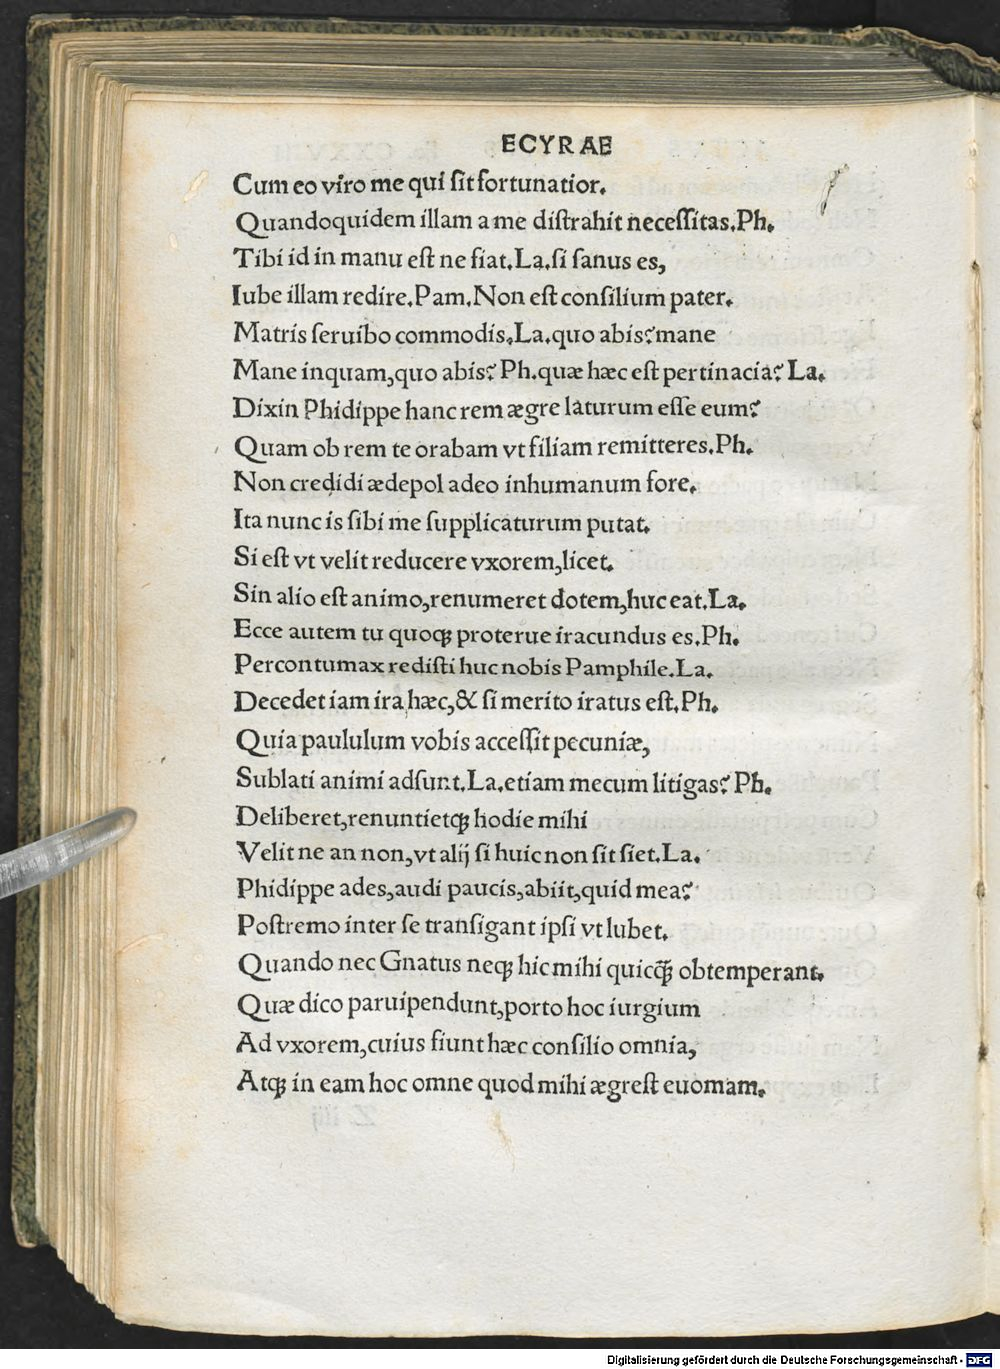 ECYRAE
Cum eo viro me qui ſit fortunatior.
Quandoquidem illam a me diſtrahit neceſſitas.Ph.
Tibi id in manu eſt ne fiat.La.ſi ſanus es,
Iube illam redire.Pam.Non eſt conſilium pater.
Matris ſeruibo commodis.La.quo abis?mane
Mane inquam,quo abis? Ph.quæ hæc eſt pertinacia? La.
Dixin Phidippe hanc rem ægre laturum eſſe eum?
Quam ob rem te orabam vt filiam remitteres.Ph.
Non credidi ædepol adeo inhumanum fore.
Ita nunc is ſibi me ſupplicaturum putat.
Si eſt vt velit reducere vxorem,licet.
Sin alio eſt animo,renumeret dotem,huc eat.La.
Ecce autem tu quoqꝫ proterue iracundus es.Ph.
Percontumax rediſti huc nobis Pamphile.La.
Decedet iam ira hæc,& ſi merito iratus eſt.Ph.
Quia paululum vobis acceſſit pecuniæ,
Sublati animi adſunt.La.etiam mecum litigas? Ph.
Deliberet,renuntietqꝫ hodie mihi
Velit ne an non,vt alij ſi huic non ſit ſiet.La.
Phidippe ades,audi paucis,abiit,quid mea?
Poſtremo inter ſe tranſigant ipſi vt lubet.
Quando nec Gnatus neqꝫ hic mihi quicq̄ꝫ obtemperant.
Quæ dico paruipendunt,porto hoc iurgium
Ad vxorem,cuius fiunt hæc conſilio omnia,
Atqꝫ in eam hoc omne quod mihi ægreſt euomam.
Digitalisierung gefördert durch die Deutsche Forschungsgemeinschaft - DFG